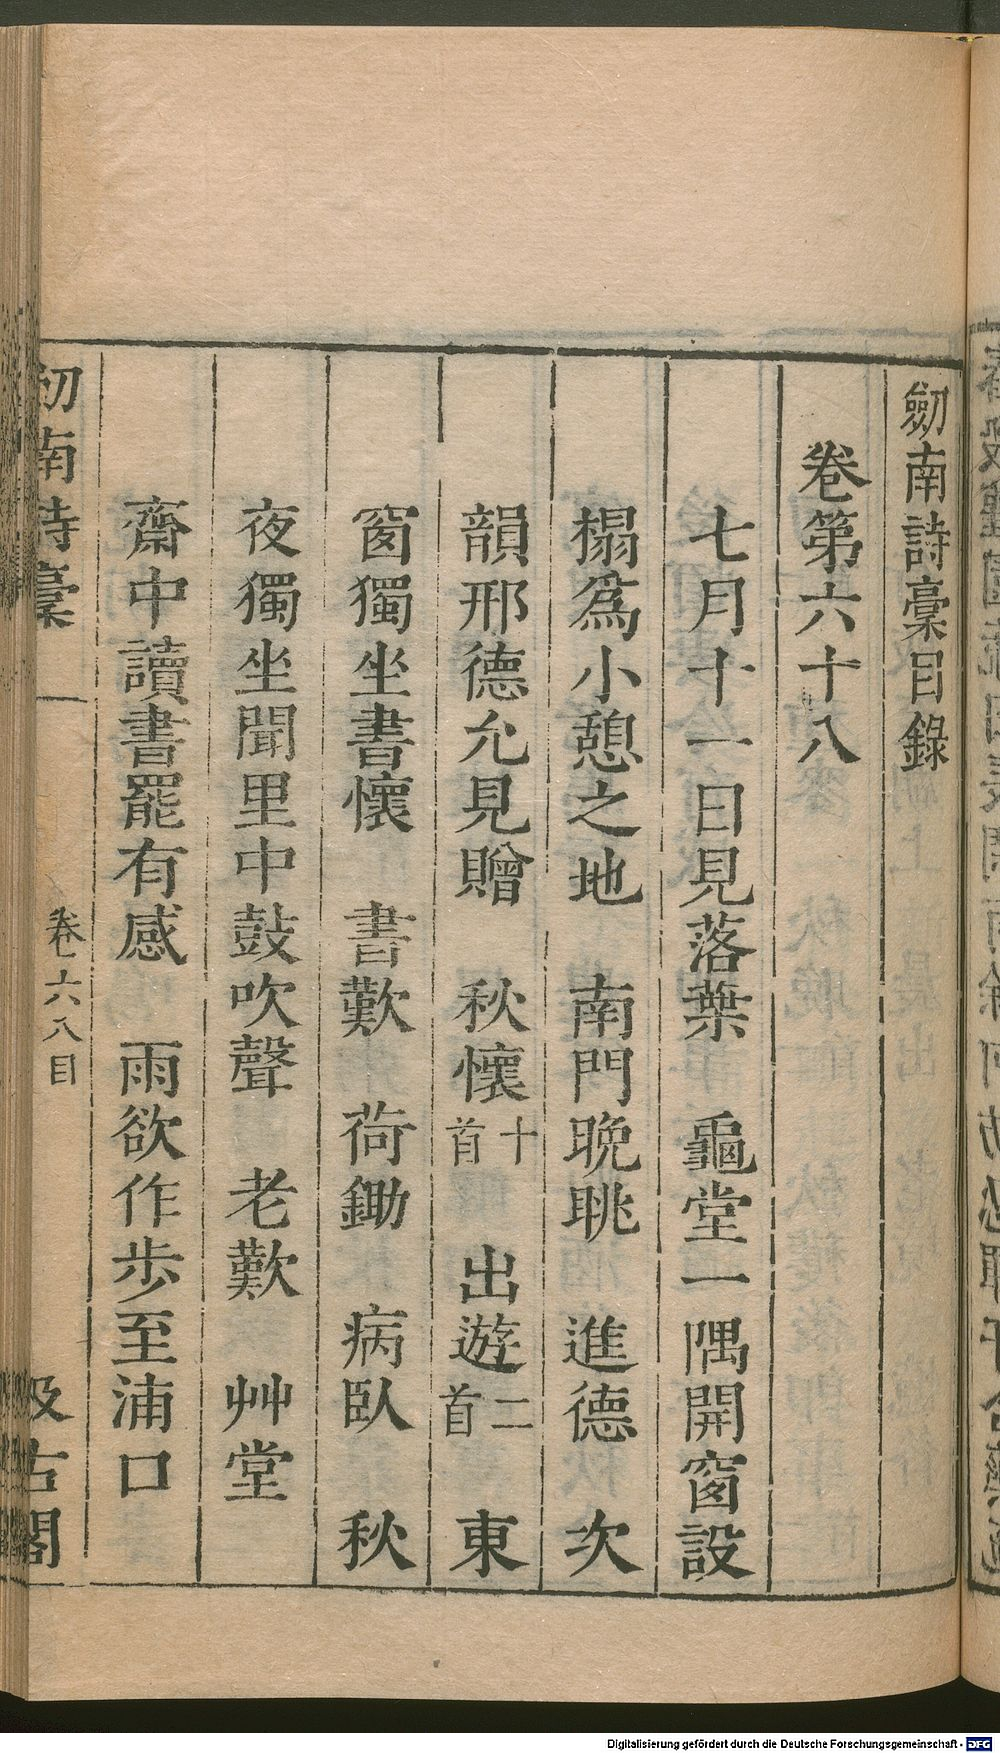 劒南詩稾目錄
卷第六十八
七月十一日見落葉　龜堂一隅開窗設
榻爲小憩之地　南門晚眺　進德　次
韻邢德允見贈　秋懷十首　出遊二首　東
窗獨坐書懷　書歎　荷鋤　病臥　秋
夜獨坐聞里中鼓吹聲　老歎　艸堂
齋中讀書罷有感　雨欲作步至浦口
劒南詩稾　卷六八目　汲古閣
Digitalisierung gefördert durch die Deutsche Forschungsgemeinschaft - DFG